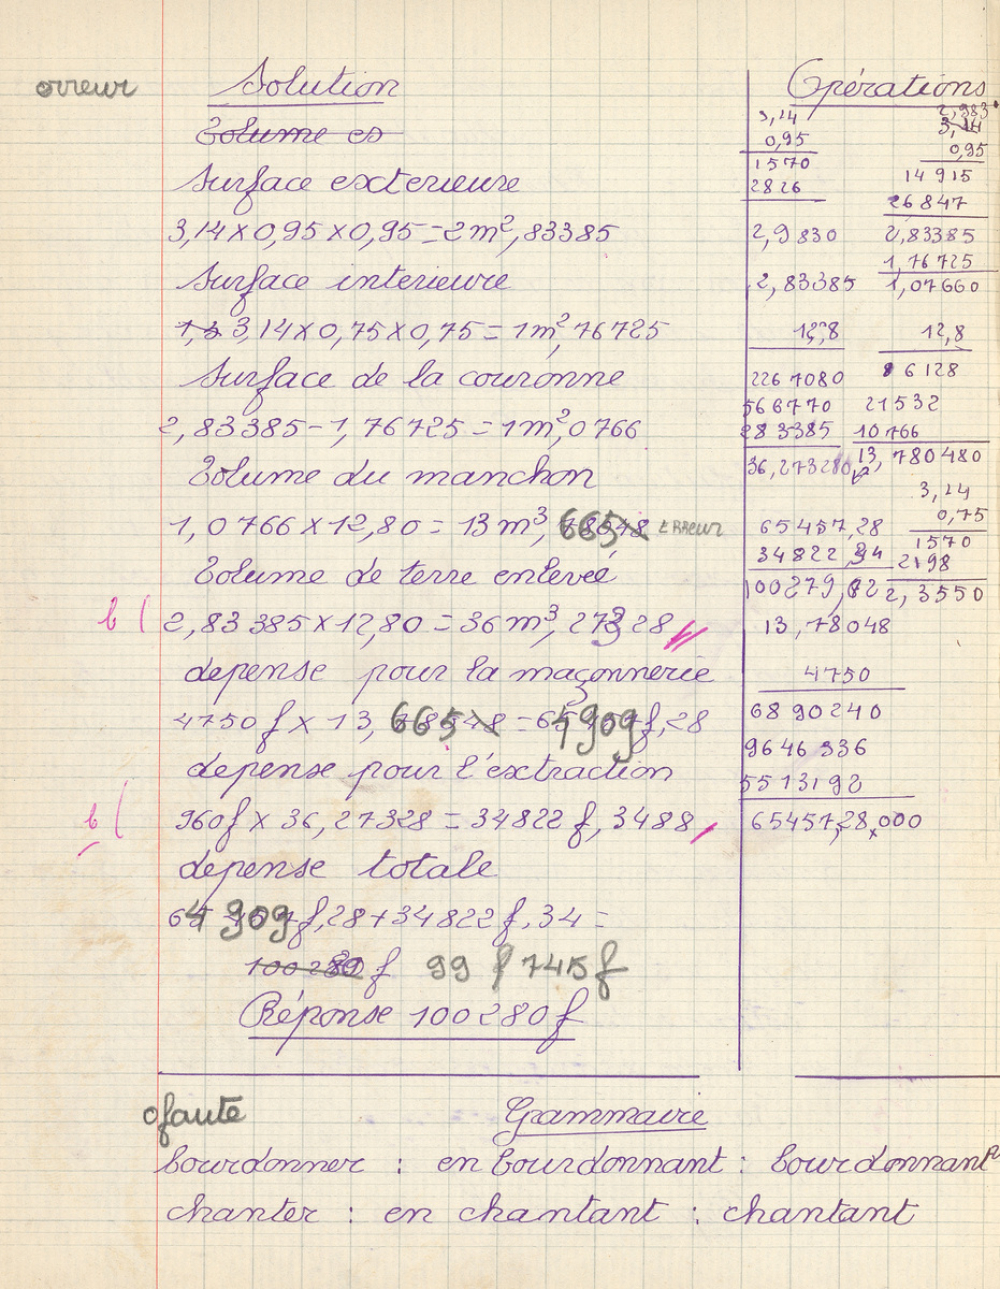 erreur
Solution
Volume es
Surface exterieure
3,14 x 0,95 x 0,95 = 2m², 83385
Surface interieure
1,3 3,14 x 0,75 x 0,75 = 1m², 76725
Surface de la couronne
2,83385 - 1,76725 = 1m², 0766
Volume du manchon
1,0766 x 12,80 = 13m³, 665 ERReur
Volume de terre enlevée
b ( 2,83385 x 12,80 = 36m³, 27328
depense pour la maçonnerie
4750f x 13, 665 = 64909f,28
depense pour l'extraction
b ( 960f x 36,27328 = 34822f,3488
depense totale
64909f,28 + 34822f,34 =
100280 f 99 f 7415f
Réponse 100280f
Opérations
3,14
0,95
1570
2826
2,9830
2,83385
12,8
2267080
566770
283385
36,273280
65457,28
34822,34
100279,62
13,78048
4750
6890240
9646336
5513192
65457,28,000
2,983
3,14
0,95
14915
26847
2,83385
1,76725
1,07660
12,8
86128
21532
10766
13,780480
3,14
0,75
1570
2198
2,3550
0faute
Grammaire
bourdonner : en bourdonnant : bourdonnant
chanter : en chantant : chantant